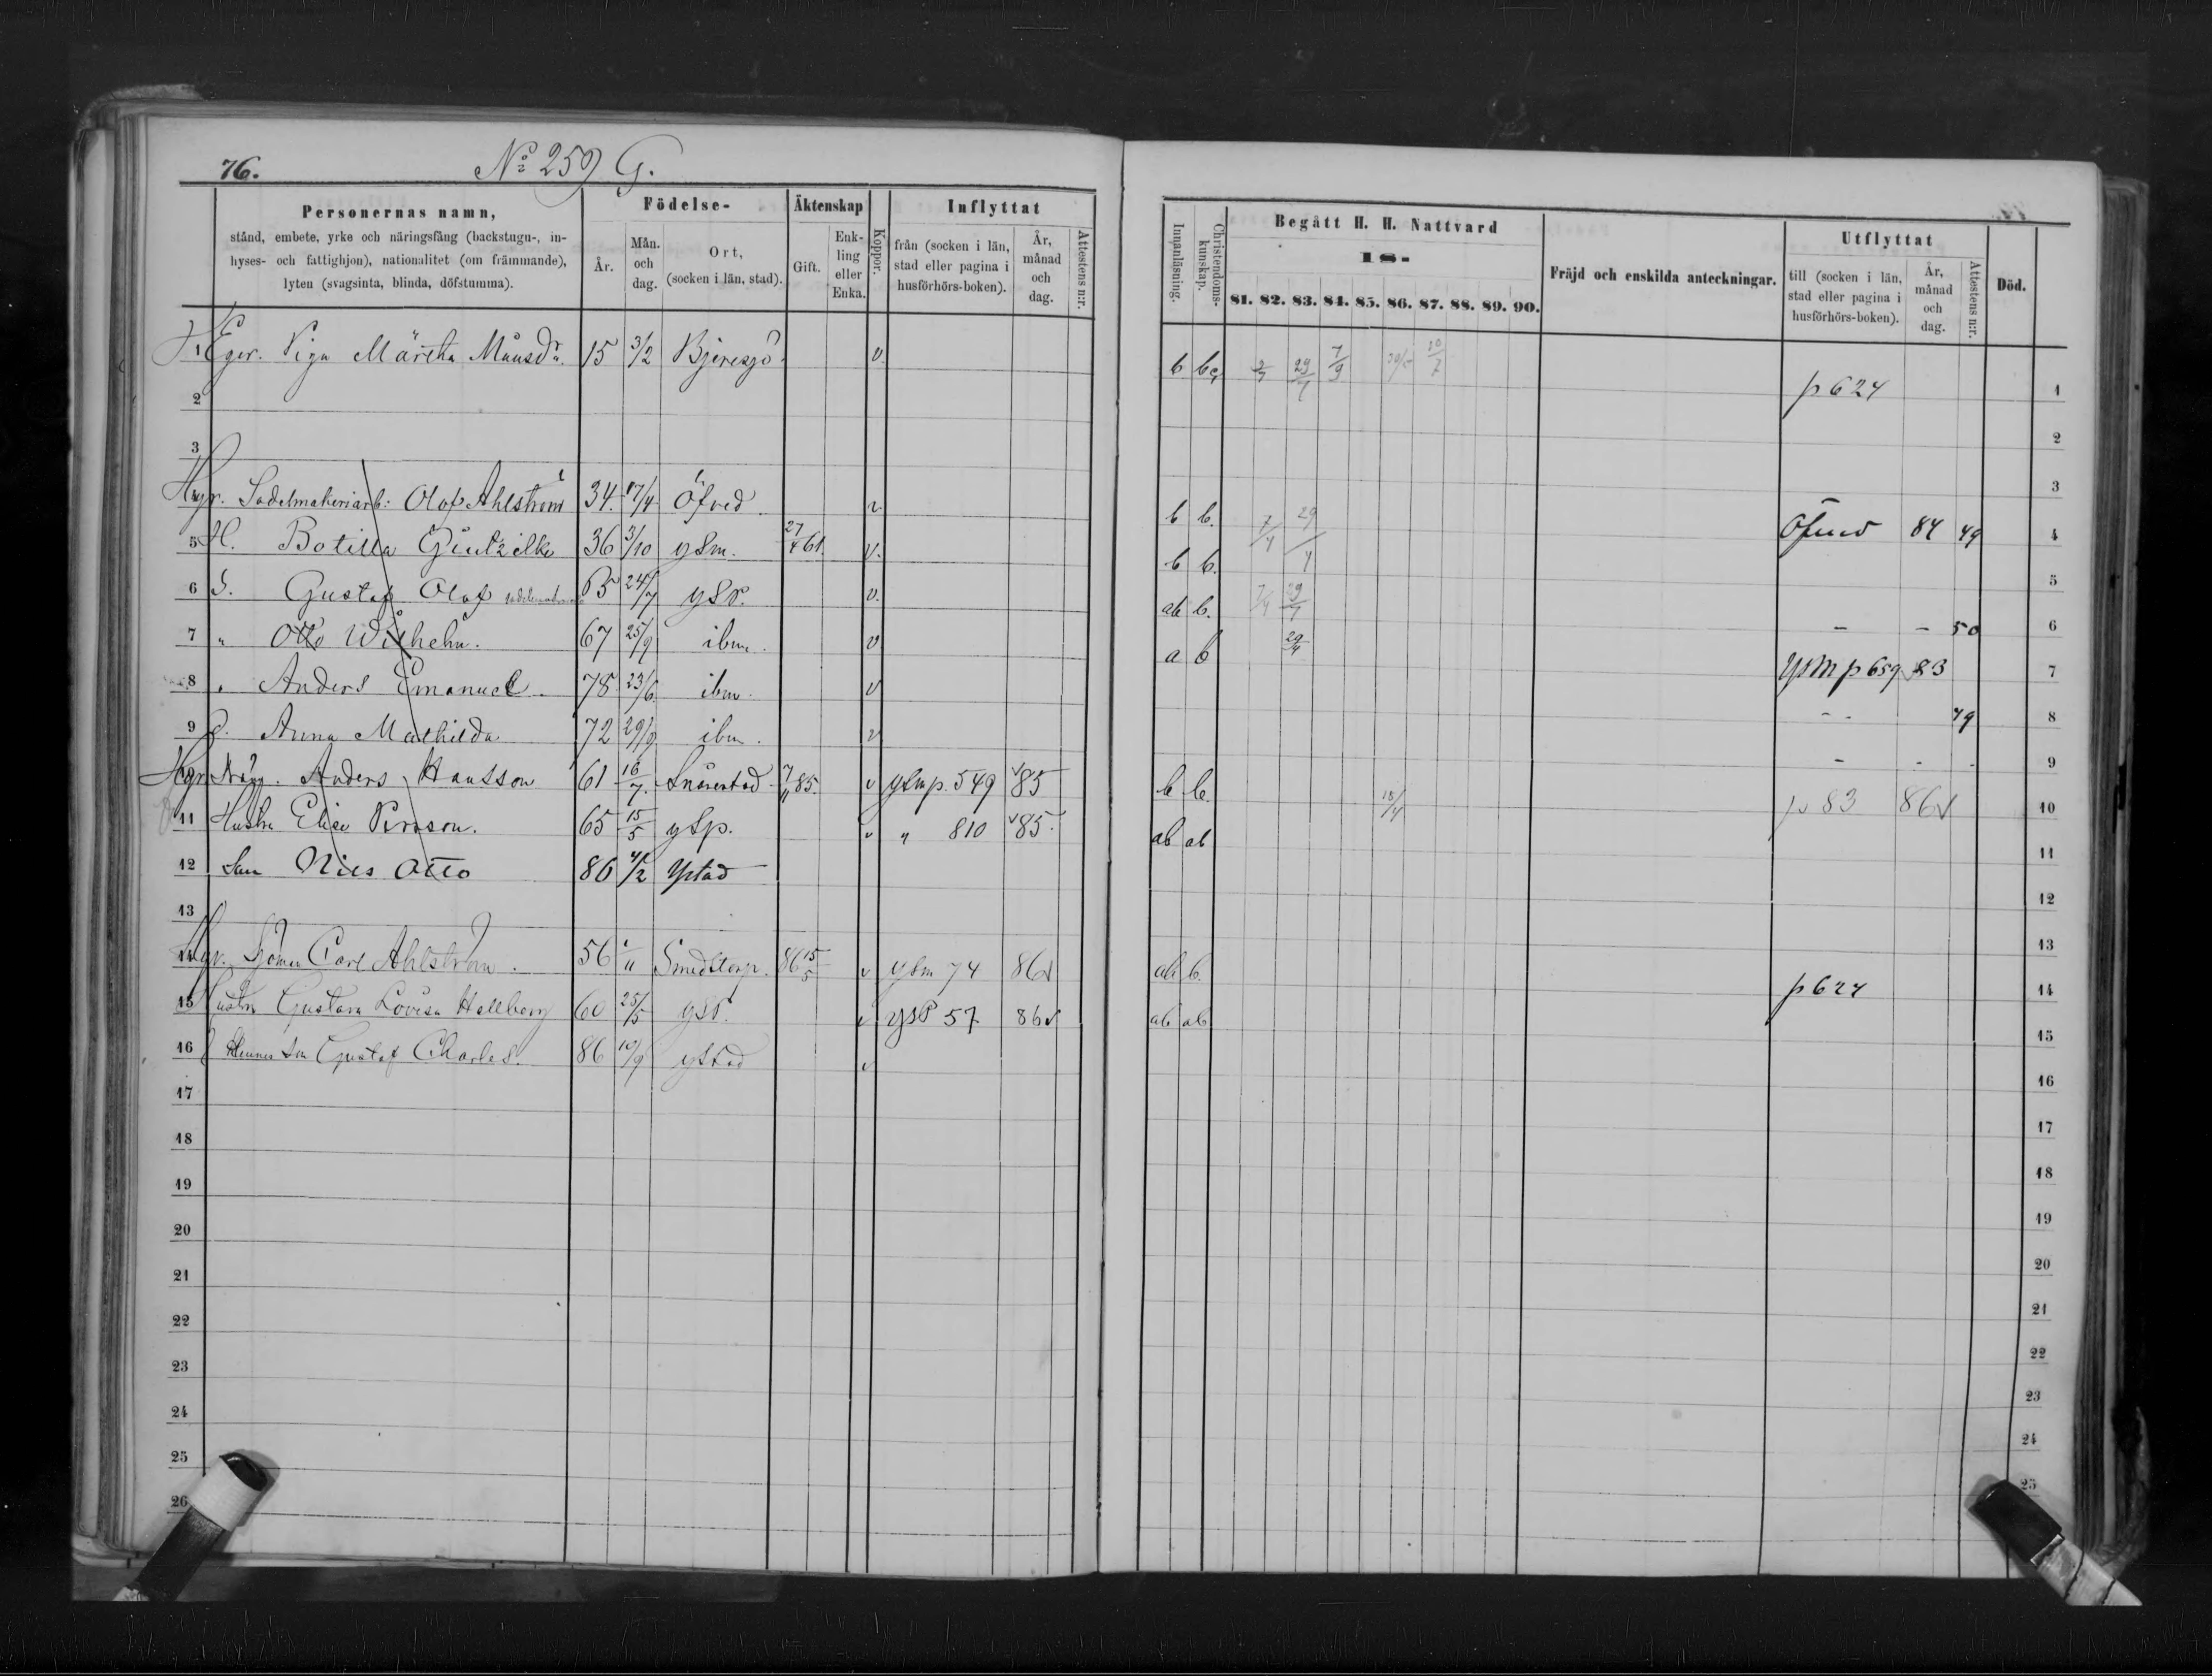 76. No 259 G.
Personernas namn,
stånd, embete, yrke och näringsfång (backstugu-, in-
hyses- och fattighjon), nationalitet (om främmande),
lyten (svagsinta, blinda, döfstumma).
Födelse-
År.
Mån. och dag.
Ort, (socken i län, stad).
Äktenskap
Gift.
Enk-ling eller Enka.
Koppor.
Inflyttat
från (socken i län, stad eller pagina i husförhörs-boken).
År, månad och dag.
Attestens n:r.
1 Eger. Piga Märtha Månsdr. 15 3/2 Bjeresjö v.
2
3
Hyr. Sadelmakeriarb: Olof Ahlström 34. 17/4 Öfved v
5 H. Botilla 36 3/10 ysm. 27/4 61. v.
6 S. Gustaf Olof 65 24/7 ysp. v.
7 " Otto Wilhelm. 67 25/9 ibm. v
8 " Anders Emanuel. 78 23/6 ibm. v
9 D. Anna Mathilda 72 29/9 ibm. v
Hyr. Anders Hansson 61 16/7 Snårestad 7/11 85. v ysm p. 549 v 85
11 Hustru Elise Persson. 65 15/5 ysp. v " 810 v 85.
12 Son Nils Otto 86 4/2 Ystad
13
Hyr. Sjöman Carl Ahlström. 56 Smedstorp. 86 15/5 v ysm 74 86 v
15 Hustru Gustava Lovisa Hallberg 60 25/5 ysp. v ysp 57 86 v
16 Hennes son Gustaf Charles. 86 10/9 ystad v
17
18
19
20
21
22
23
24
25
26
Innanläsning.
Christendoms-kunskap.
Begått H. H. Nattvard
18-
81. 82. 83. 84. 85. 86. 87. 88. 89. 90.
Fräjd och enskilda anteckningar.
Utflyttat
till (socken i län, stad eller pagina i husförhörs-boken).
År, månad och dag.
Attestens n:r.
Död.
b 29/7 7/9 30/7 p 624 1
2
3
b b. 7/4 29/4 Öfved 84 49 4
b b. 5
ab b. 7/4 29/4 – – 50 6
a b 29/4 ysm p 659 83 7
– – 49 8
– – 9
b b. 18/4 p 83 86 v 10
ab ab 11
12
13
ab b. p 624 14
ab ab 15
16
17
18
19
20
21
22
23
24
25